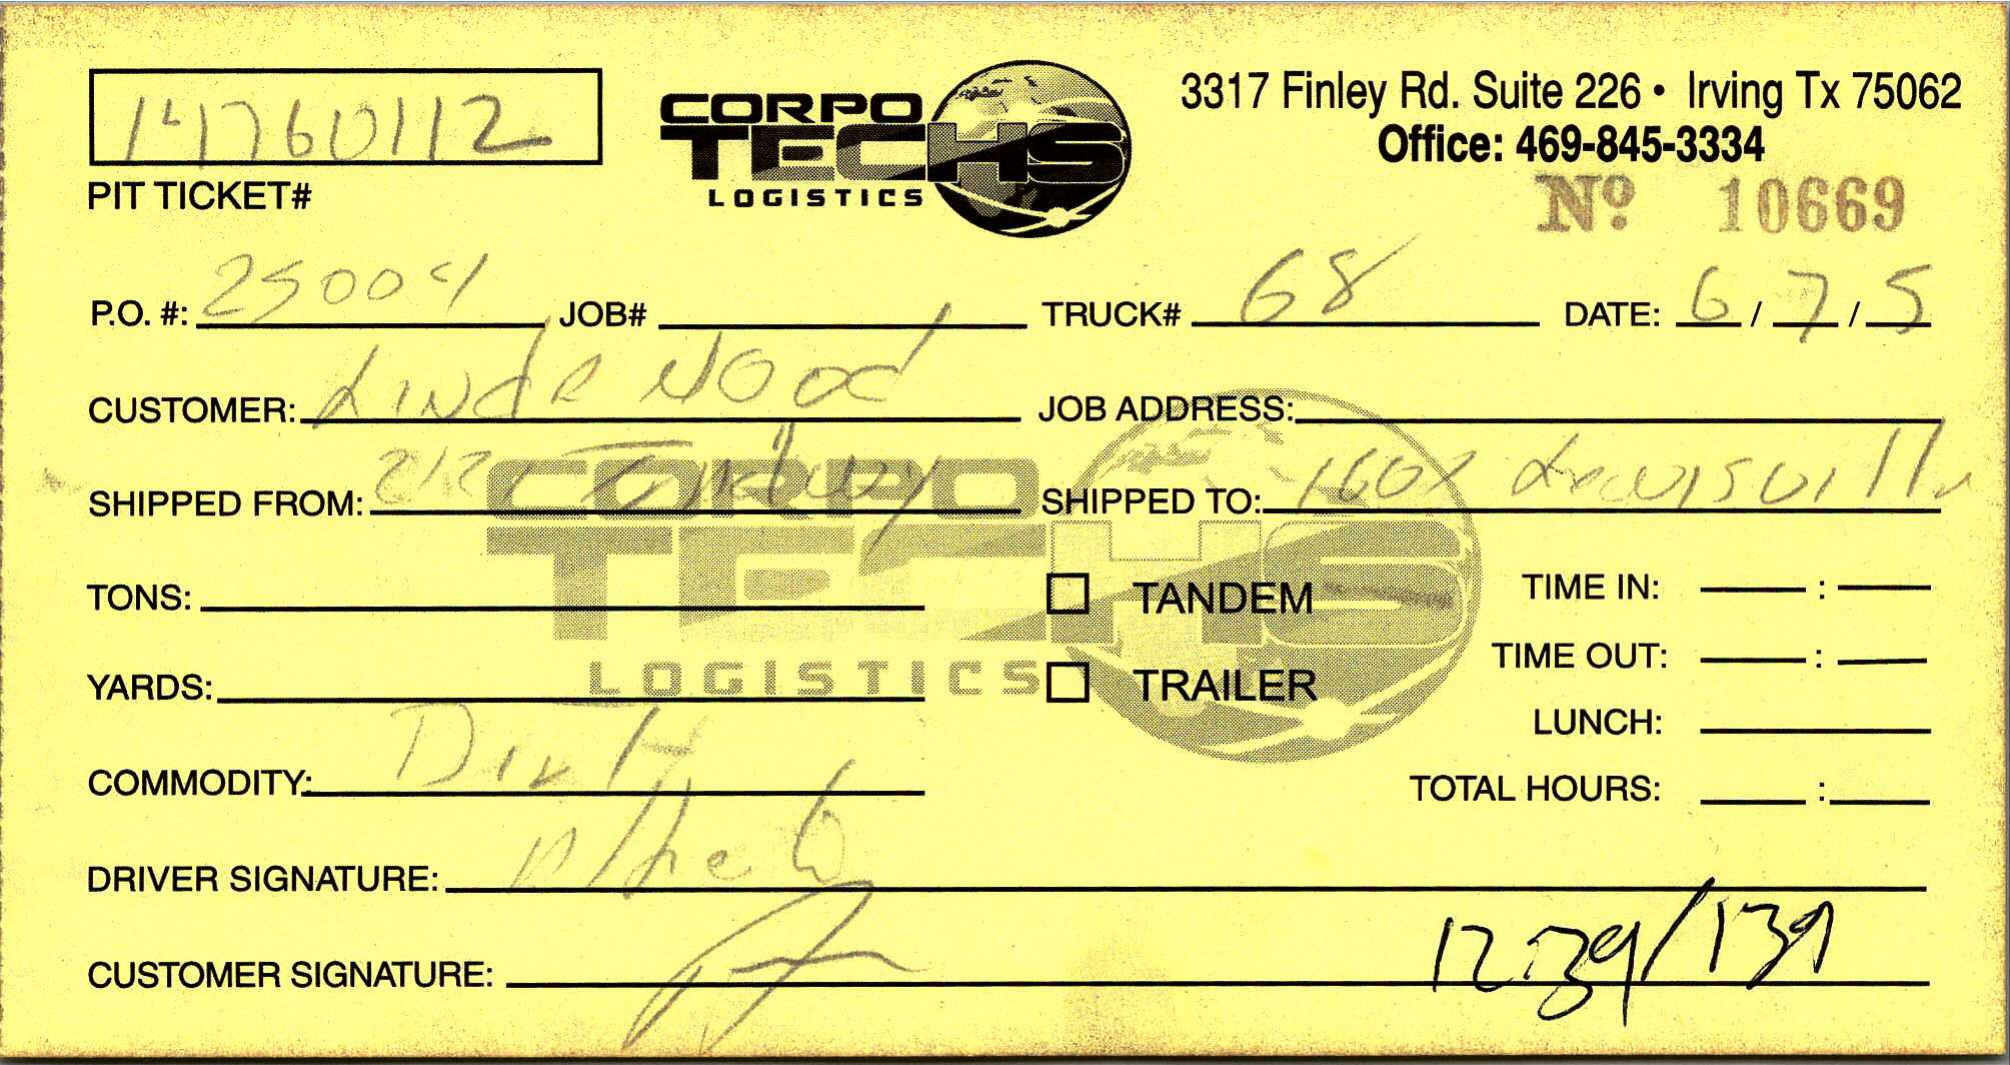 14760112
PIT TICKET#
CORPO
TECHS
LOGISTICS
3317 Finley Rd. Suite 226 • Irving Tx 75062
Office: 469-845-3334
Nº 10669
P.O. #: 25004 JOB# TRUCK# 68 DATE: 6 / 7 / 5
CUSTOMER: JOB ADDRESS:
SHIPPED FROM: SHIPPED TO: Lewisville
CORPO
TECHS
LOGISTICS
TONS: TANDEM TIME IN: :
TIME OUT: :
YARDS: TRAILER
LUNCH:
COMMODITY: Dirt TOTAL HOURS: :
DRIVER SIGNATURE:
CUSTOMER SIGNATURE: 1239/139